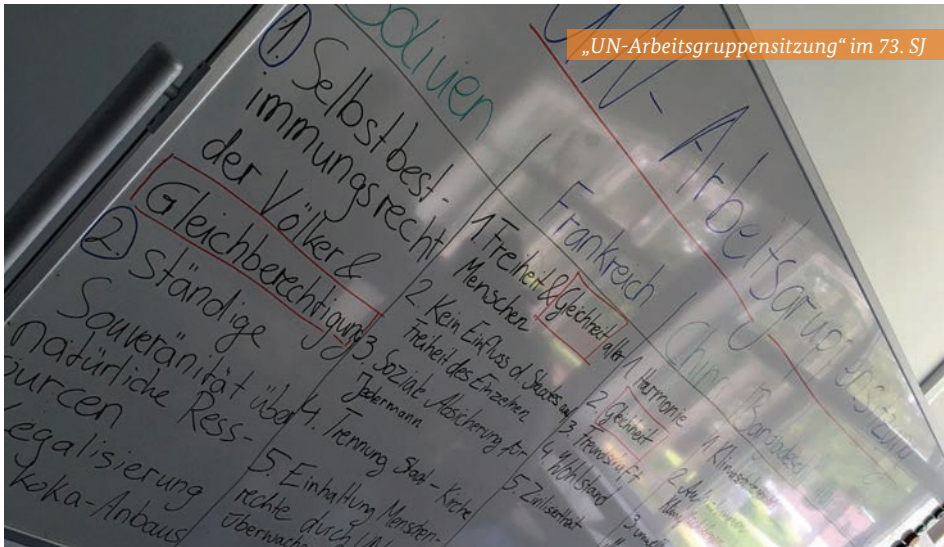 „UN-Arbeitsgruppensitzung“ im 73. SJ
UN-Arbeitsgruppensitzung
1. Selbstbest-
immungsrecht
der Völker &
Gleichberechtigung
2. ständige
Souveränität über
natürliche Ress-
ourcen
Legalisierung
Koka-Anbaus
Frankreich
1. Freiheit & Gleichheit aller
Menschen
2. Kein Einfluss d. Staates auf
Freiheit des Einzelnen
3. Soziale Absicherung für
Jedermann
4. Trennung Staat-Kirche
5. Einhaltung Menschen-
rechte durch
China
1. Harmonie
2. Gleichheit
3. Freundschaft
4. Wohlstand
Barbados